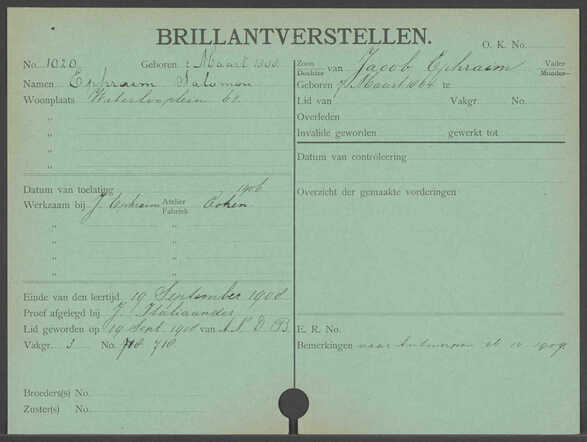 BRILLANTVERSTELLEN.
O. K. No.
No. 1020 Geboren: 2 Maart
Namen Ephraim Salomon
Woonplaats Waterlooplein 61.
"
"
"
"
Datum van toelating 1906
Werkzaam bij J. Ephraim Atelier Fabriek Cohen
" "
" "
" "
" "
Einde van den leertijd 19 September 1908
Proef afgelegd bij J. Italiaander
Lid geworden op 19 Sept. 1908 van A. N. D. B.
Vakgr. 3 No. 718 718
Broeders(s) No.
Zuster(s) No.
Zoon Dochter van Jacob Ephraim Vader Moeder
Geboren 7 Maart 1864 te
Lid van Vakgr. No.
Overleden
Invalide geworden gewerkt tot
Datum van controleering
Overzicht der gemaakte vorderingen
E. R. No.
Bemerkingen naar Antwerpen 1909